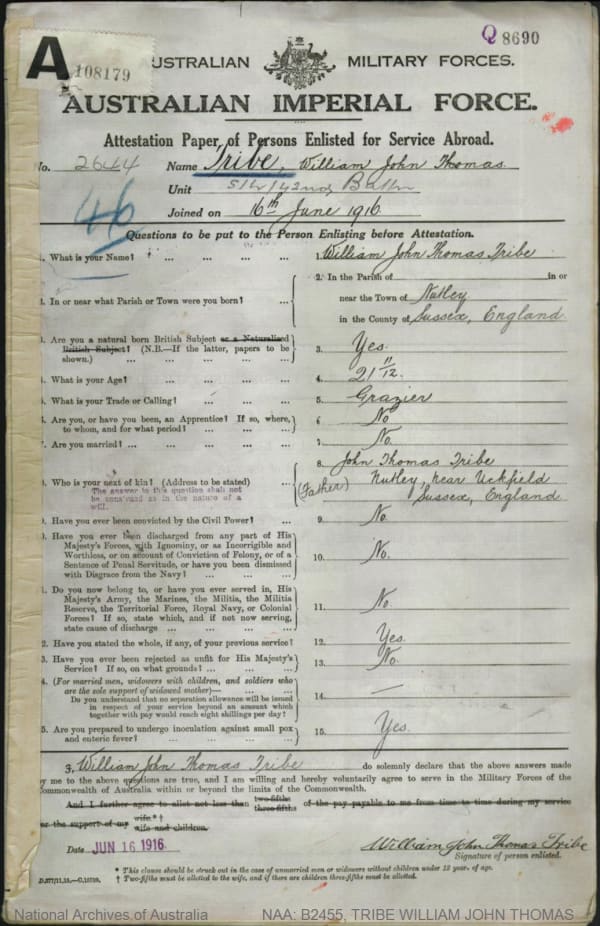 A
108179
Q 8690
USTRALIAN MILITARY FORCES.
AUSTRALIAN IMPERIAL FORCE.
Attestation Paper of Persons Enlisted for Service Abroad.
No. 2644 Name Tribe, William John Thomas.
Unit 5th/42nd Battn
46
Joined on 16th June 1916.
Questions to be put to the Person Enlisting before Attestation.
1. What is your Name? ... ... ... 1. William John Thomas Tribe
2. In the Parish of in or
2. In or near what Parish or Town were you born? ... near the Town of Nutley
in the County of Sussex, England
3. Are you a natural born British Subject or a Naturalised
British Subject? (N.B.—If the latter, papers to be
shown.) ... ... ... ... 3. Yes.
4. What is your Age? ... ... ... 4. 21 11/12.
5. What is your Trade or Calling? ... ... ... 5. Grazier
6. Are you, or have you been, an Apprentice? If so, where,
to whom, and for what period? ... ... ... 6 No
7. Are you married? ... ... ... ... 7. No.
8. John Thomas Tribe
8. Who is your next of kin? (Address to be stated) ... (Father) Nutley, near Uckfield
The answer to this question shall not
be construed as in the nature of a
will.
Sussex, England
9. Have you ever been convicted by the Civil Power? ... 9. No.
10. Have you ever been discharged from any part of His
Majesty's Forces, with Ignominy, or as Incorrigible and
Worthless, or on account of Conviction of Felony, or of a
Sentence of Penal Servitude, or have you been dismissed
with Disgrace from the Navy? ... ... ... 10. No.
11. Do you now belong to, or have you ever served in, His
Majesty's Army, the Marines, the Militia, the Militia
Reserve, the Territorial Force, Royal Navy, or Colonial
Forces? If so, state which, and if not now serving,
state cause of discharge ... ... ... ... 11. No.
12. Have you stated the whole, if any, of your previous service? 12. Yes.
13. Have you ever been rejected as unfit for His Majesty's
Service? If so, on what grounds? ... ... ... 13. No.
14. (For married men, widowers with children, and soldiers who
are the sole support of widowed mother)—
Do you understand that no separation allowance will be issued
in respect of your service beyond an amount which
together with pay would reach eight shillings per day? ... 14. —
15. Are you prepared to undergo inoculation against small pox
and enteric fever? ... ... ... ... 15. Yes.
I, William John Thomas Tribe do solemnly declare that the above answers made
by me to the above questions are true, and I am willing and hereby voluntarily agree to serve in the Military Forces of the
Commonwealth of Australia within or beyond the limits of the Commonwealth.
And I further agree to allot not less than two-fifths three-fifths of the pay payable to me from time to time during my service
for the support of my wife.*† wife and children.
Date JUN 16 1916 William John Thomas Tribe
Signature of person enlisted.
* This clause should be struck out in the case of unmarried men or widowers without children under 18 years of age.
† Two-fifths must be allotted to the wife, and if there are children three-fifths must be allotted.
National Archives of Australia NAA: B2455, TRIBE WILLIAM JOHN THOMAS